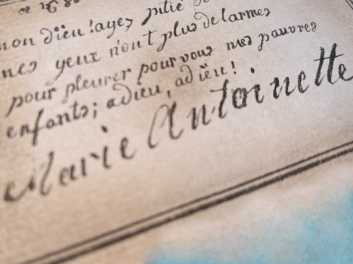 mon dieu! ayez pitié
mes yeux n'ont plus de larmes
pour pleurer pour vous mes pauvres
enfants; adieu, adieu!
Marie Antoinette